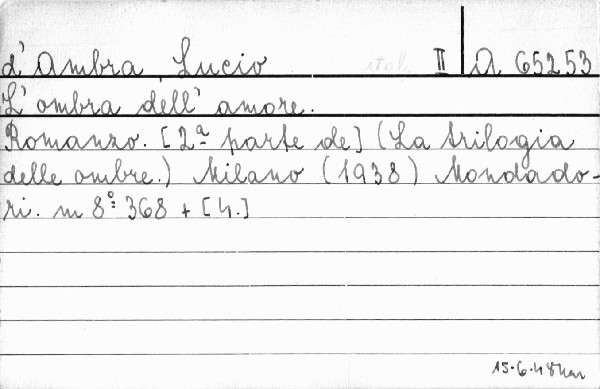 d'Ambra, Lucio ital. II A 65253
L'ombra dell' amore.
Romanzo. [2ª parte de] (La trilogia
delle ombre.) Milano (1938) Mondado-
ri. m 8º: 368 + [4.]
15.6.48